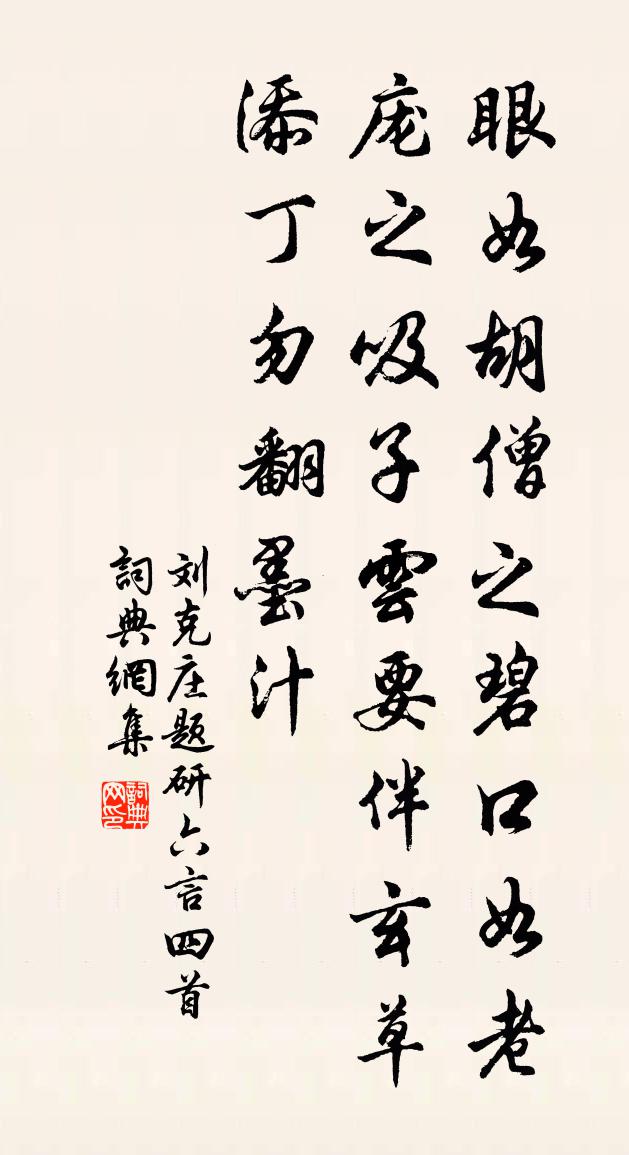 眼如胡僧之碧口如老
庞之吸子雲要伴玄草
添丁勿翻墨汁
刘克庄题研六言四首
詞典網集
詞典网印